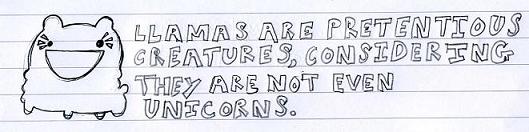 LLAMAS ARE PRETENTIOUS
CREATURES, CONSIDERING
THEY ARE NOT EVEN
UNICORNS.